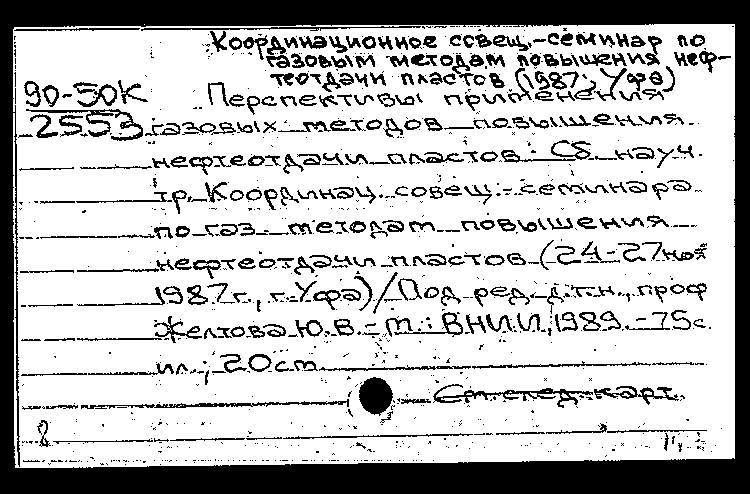 Координационное совещ.-семинар по
газовым методам повышения неф-
теотдачи пластов (1987; Уфа)
90-50К
2553
Перспективы применения
газовых методов повышения
нефтеотдачи пластов: Сб. науч.
тр. Координац. совещ.-семинара
по газ. методам повышения
нефтеотдачи пластов (24-27 ноя
1987г., г. Уфа)/Под ред. д.т.н., проф
Желтова Ю.В.-М.: ВНИИ, 1989.-75с.
ил.; 20см
См. след. карт.
8